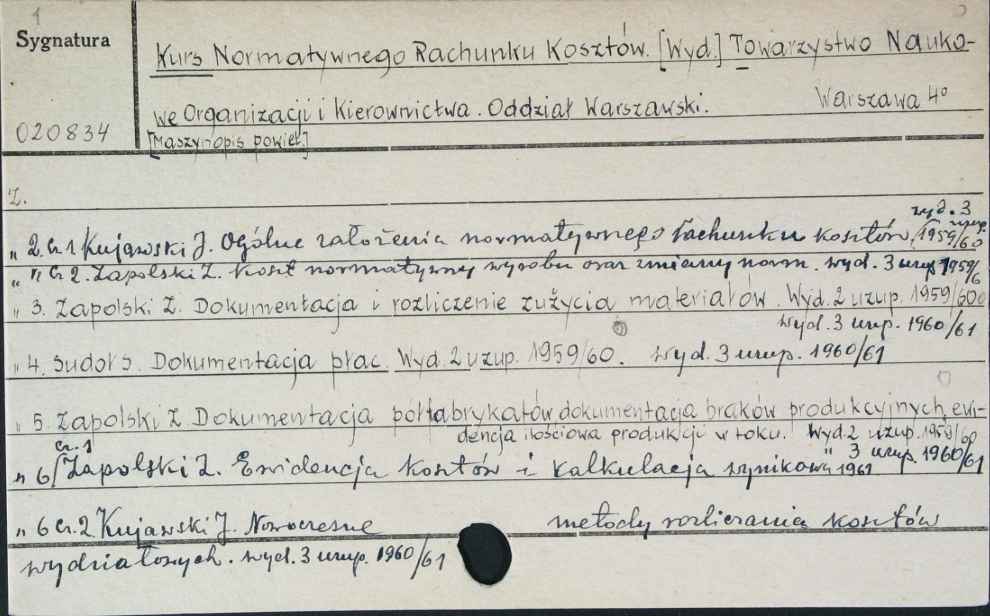 1
Sygnatura
Kurs Normatywnego Rachunku Kosztów. [Wyd.] Towarzystwo Nauko-
we Organizacji i Kierownictwa. Oddział Warszawski. Warszawa 4°
020834
[Maszynopis powiel.]
Z.
wyd. 3 uzup.
" 2 Cz 1 Kujawski J. Ogólne założenia normatywnego rachunku kosztów, 1959/60
" " Cz 2. Zapolski Z. Koszt normatywny wyrobu oraz zmiany norm. wyd. 3 uzup 1959/6
" 3. Zapolski Z. Dokumentacja i rozliczenie zużycia materiałów. Wyd. 2 uzup. 1959/60
wyd. 3 uzup. 1960/61
" 4. Sudoł S. Dokumentacja płac. Wyd. 2 uzup. 1959/60. wyd. 3 uzup. 1960/61
" 5. Zapolski Z Dokumentacja półfabrykatów dokumentacja braków produkcyjnych, ewi-
dencja ilościowa produkcji w toku. Wyd. 2 uzup. 1959/60
" 3 uzup. 1960/61
cz. 1
" 6/ Zapolski Z. Ewidencja kosztów i kalkulacja wynikowa 1961
" 6 cz. 2 Kujawski J. Nowoczesne metody rozliczania kosztów
wydziałowych. wyd. 3 uzup. 1960/61